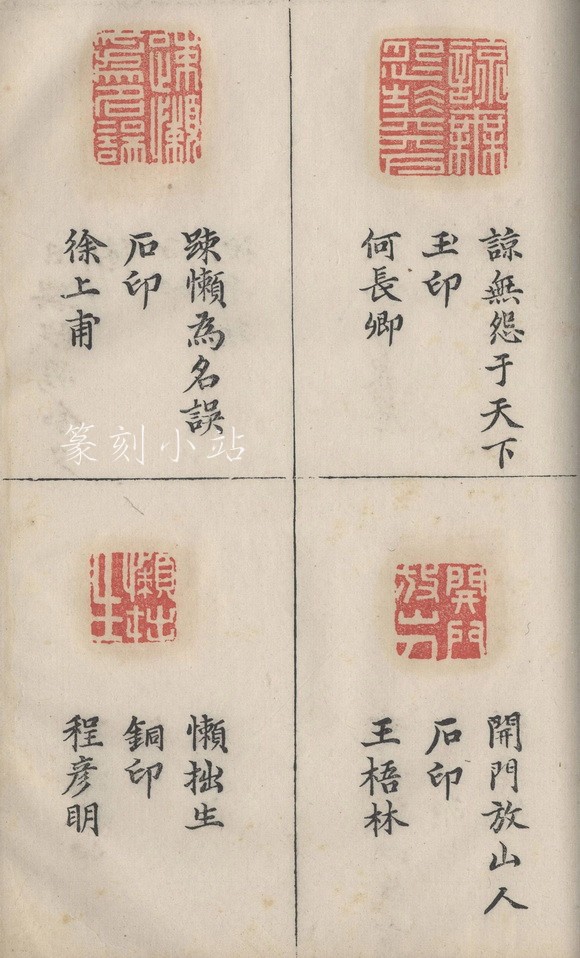 諒無怨于天下
玉印
何長卿
踈懶為名誤
石印
徐上甫
開門放山人
石印
王梧林
懶拙生
銅印
程彥明
篆刻小站